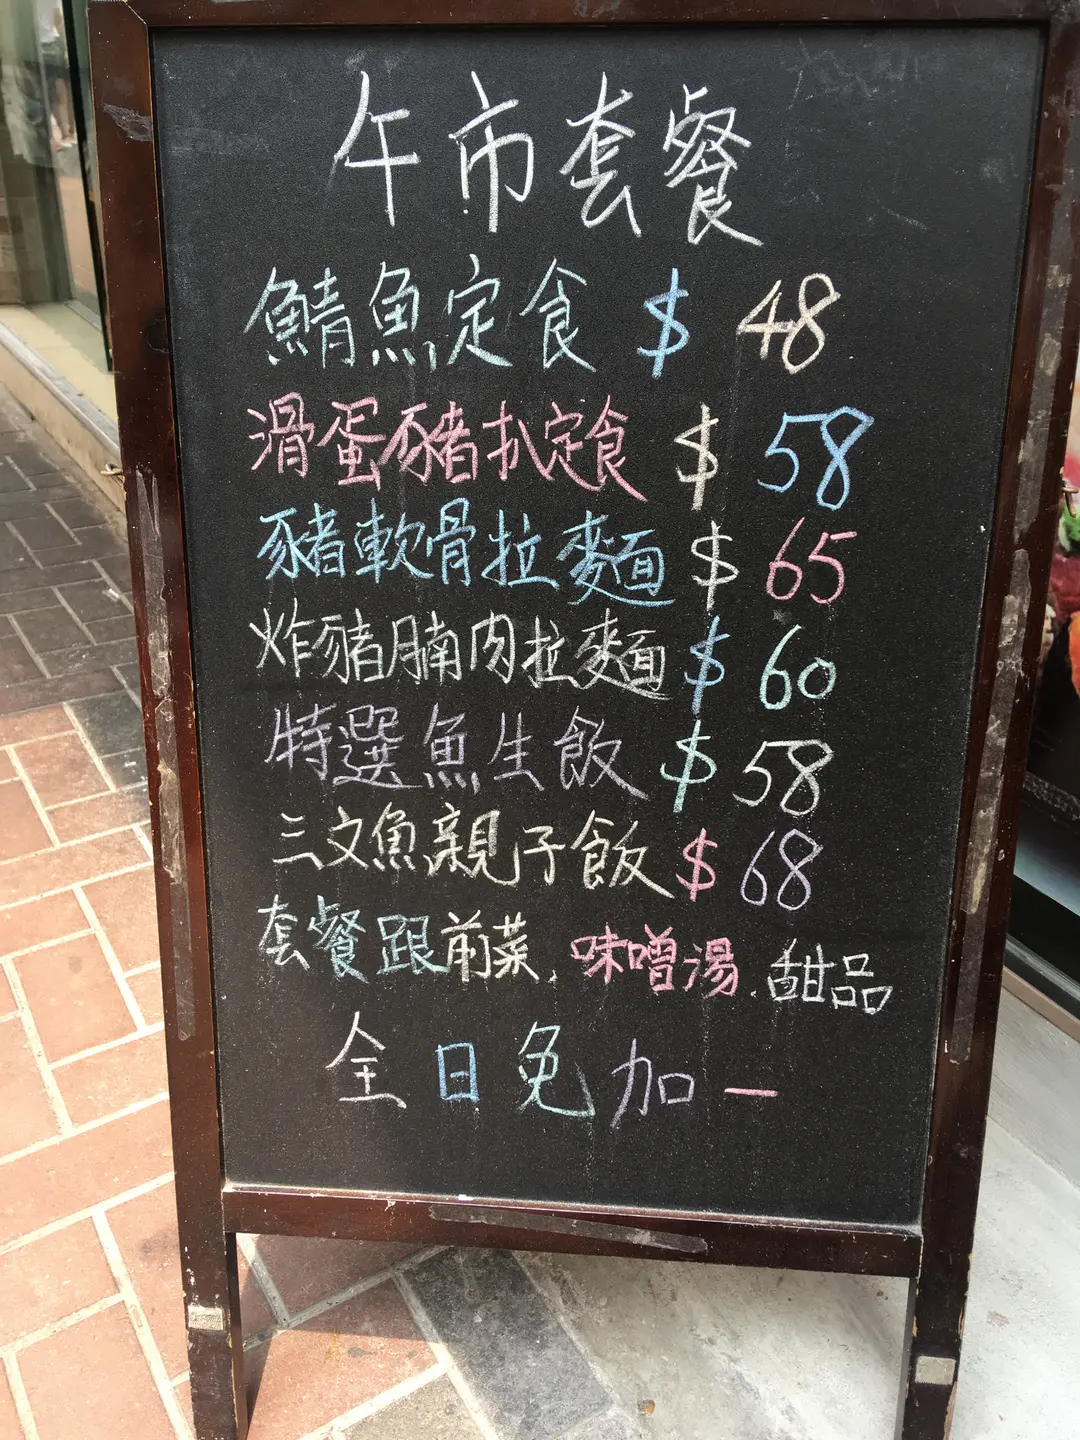 午市套餐
鯖魚定食 $ 48
滑蛋豬扒定食 $ 58
豬軟骨拉麵 $ 65
炸豬腩肉拉麵 $ 60
特選魚生飯 $ 58
三文魚親子飯 $ 68
套餐跟前菜.味噌湯.甜品
全日免加一